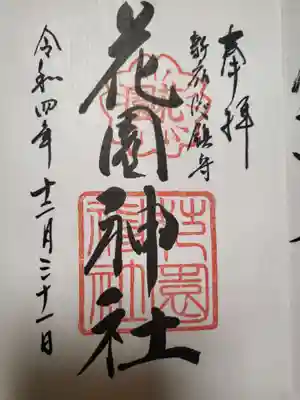 奉拝
新宿総鎮守
花園神社
令和四年十二月三十一日
花園神社